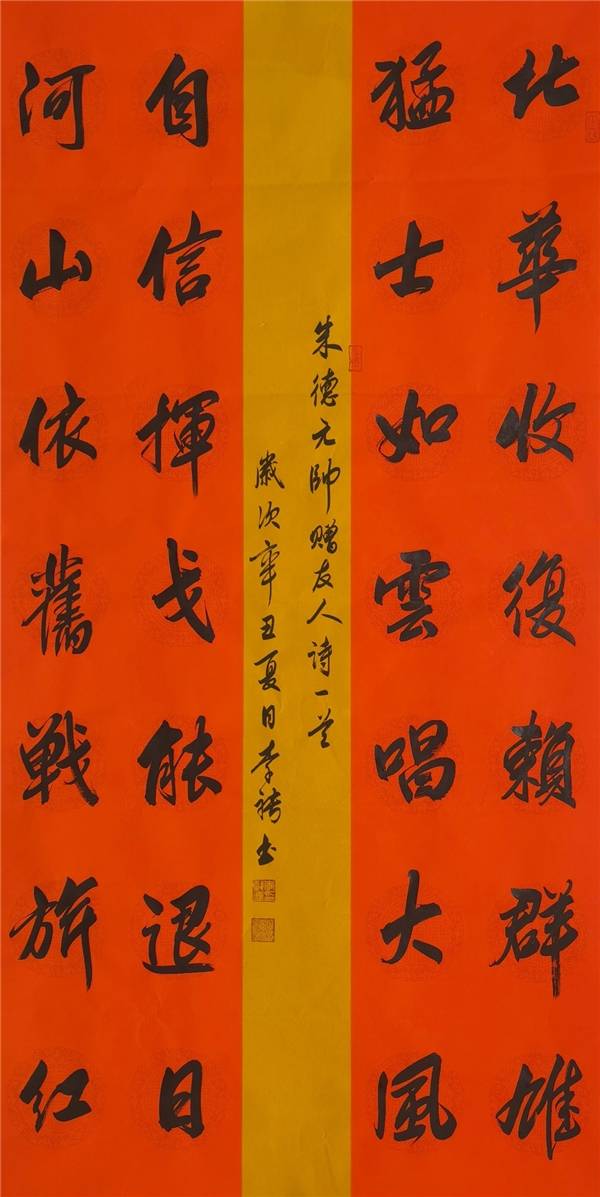 北華收復賴群雄
猛士如雲唱大風
自信揮戈能退日
河山依舊戦旂紅
朱德元帥赠友人诗一首
歲次辛丑夏日李书